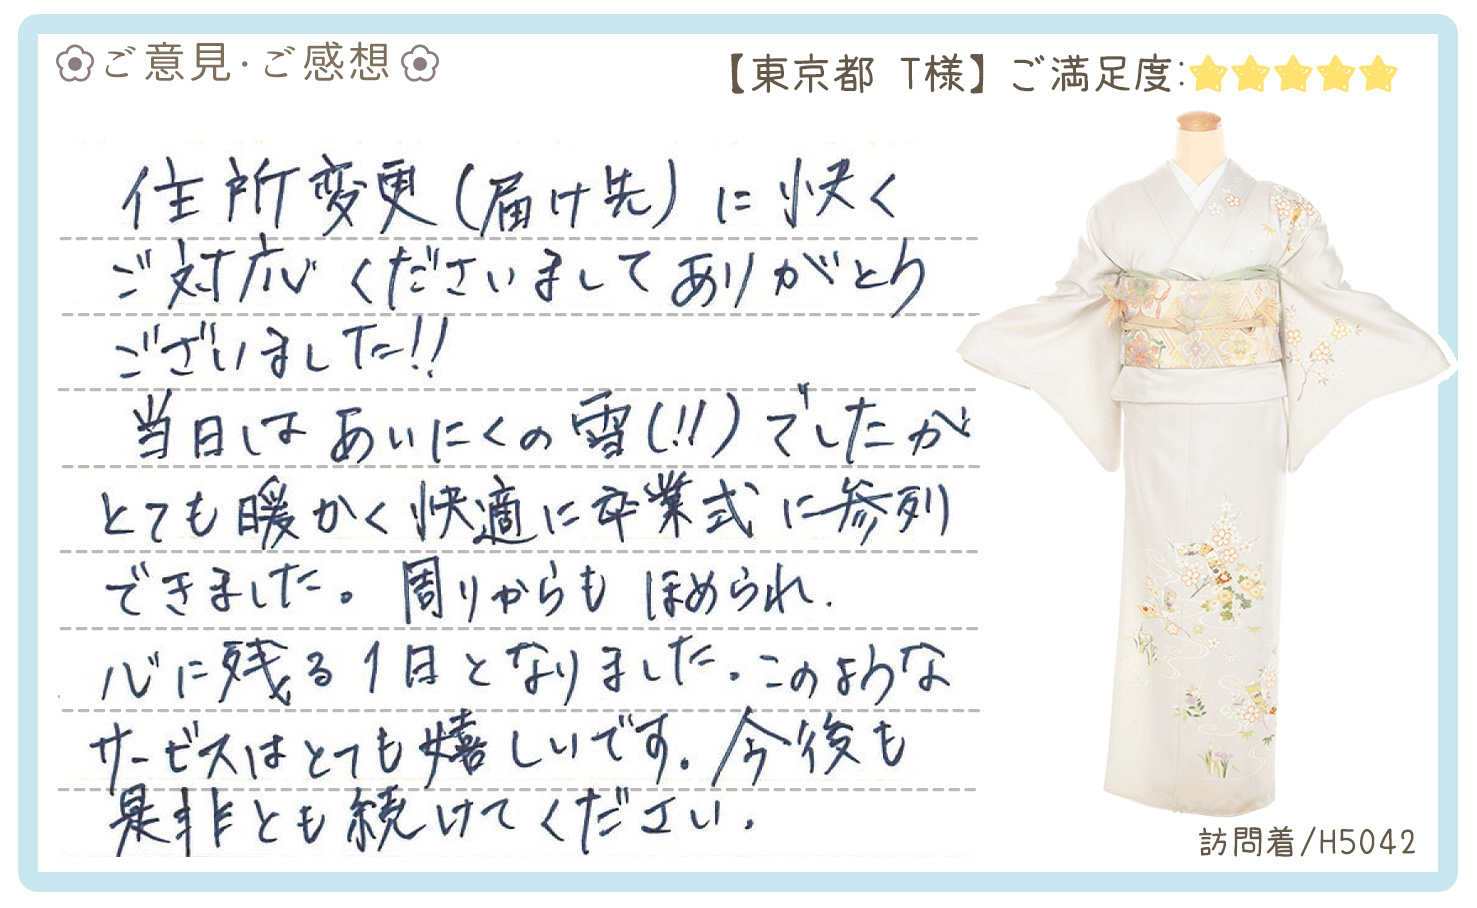 ご意見・ご感想
【東京都 T様】ご満足度:
住所変更(届け先)に快く
ご対応くださいましてありがとう
ございました!!
当日はあいにくの雪(!!)でしたが
とても暖かく快適に卒業式に参列
できました。周りからも ほめられ、
心に残る1日となりました。このような
サービスはとても嬉しいです。今後も
是非とも続けてください。
訪問着/H5042